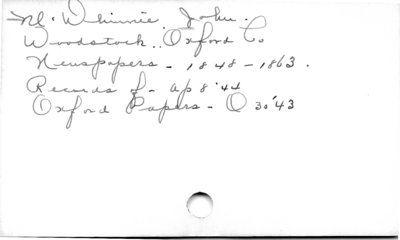 Mc. Whinnie. John.
Woodstock.. Oxford Co
Newspapers - 1848 - 1863.
Records of - Ap 8 '44
Oxford Papers - O 30 '43